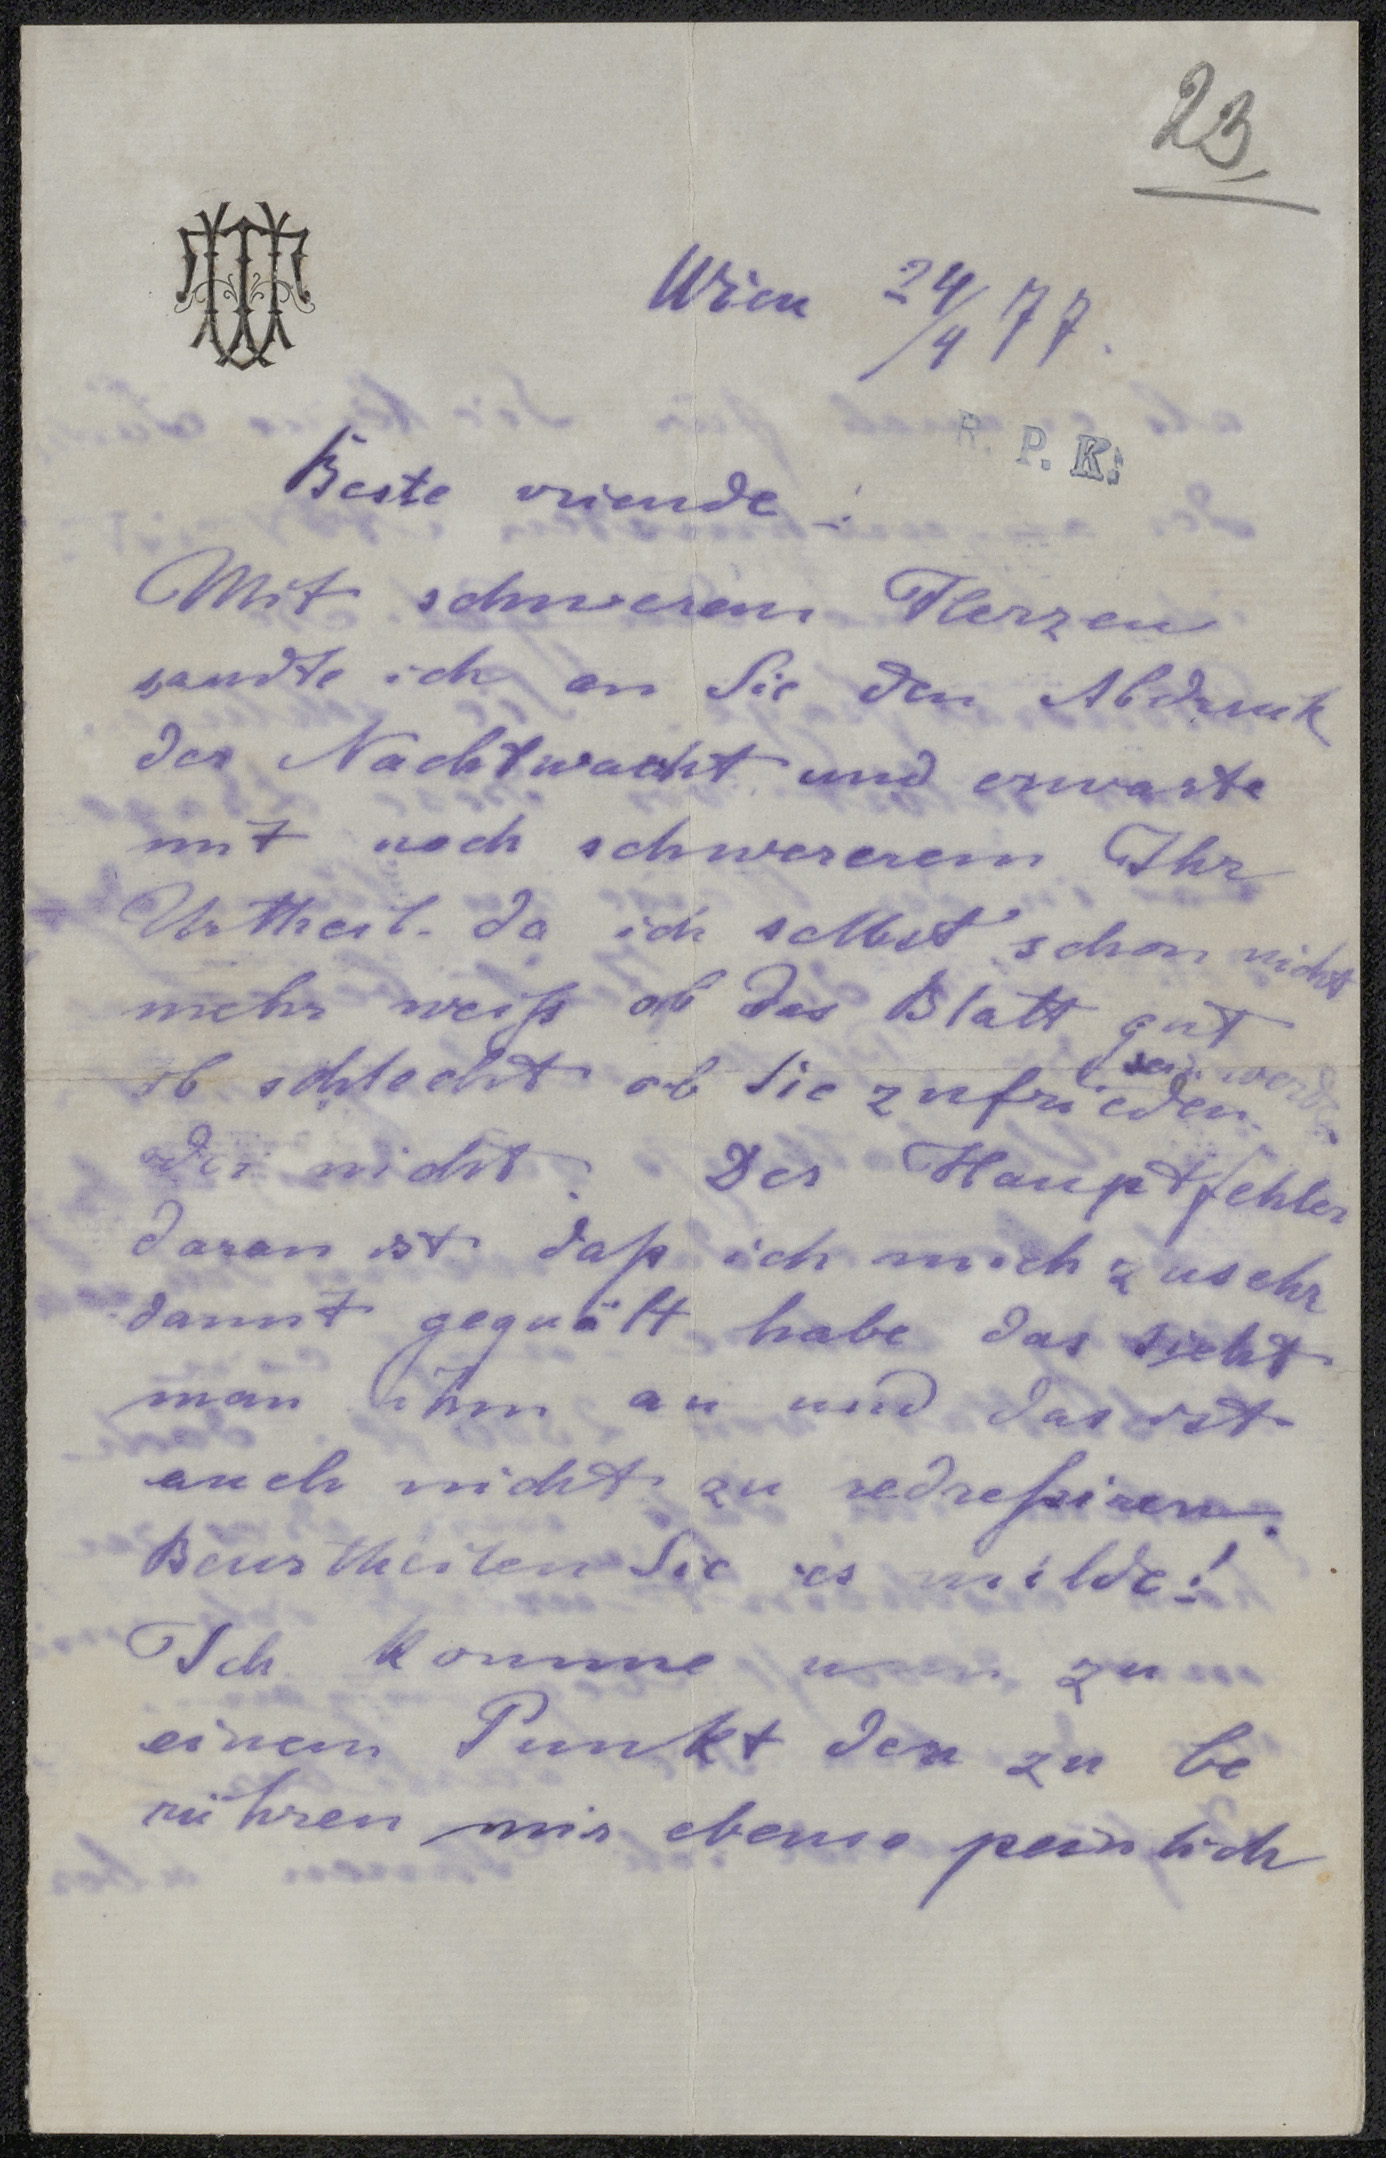 23
Wien 24/4 77.
R. P. K.
Beste vriende!
Mit schwerem Herzen
sandte ich an Sie den Abdruck
der Nachtwacht und erwarte
mit noch schwererem Ihr
Urtheil. da ich selbst schon nicht
mehr weiß ob das Blatt gut
ob schlecht ob Sie zufrieden sein werden
oder nicht. Der Hauptfehler
daran ist daß ich mich zusehr
damit gequält habe das sieht
man ihm an und das ist
auch nicht zu redreßiren.
Beurtheilen Sie es milde!
Ich komme nun zu
einem Punkt den zu be
rühren mir ebenso peinlich